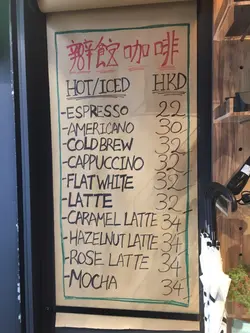 咖啡
HOT/ICED HKD
-ESPRESSO 22
-AMERICANO 30
-COLD BREW 32
-CAPPUCCINO 32
-FLAT WHITE 32
-LATTE 32
-CARAMEL LATTE 34
-HAZELNUT LATTE 34
-ROSE LATTE 34
-MOCHA 34